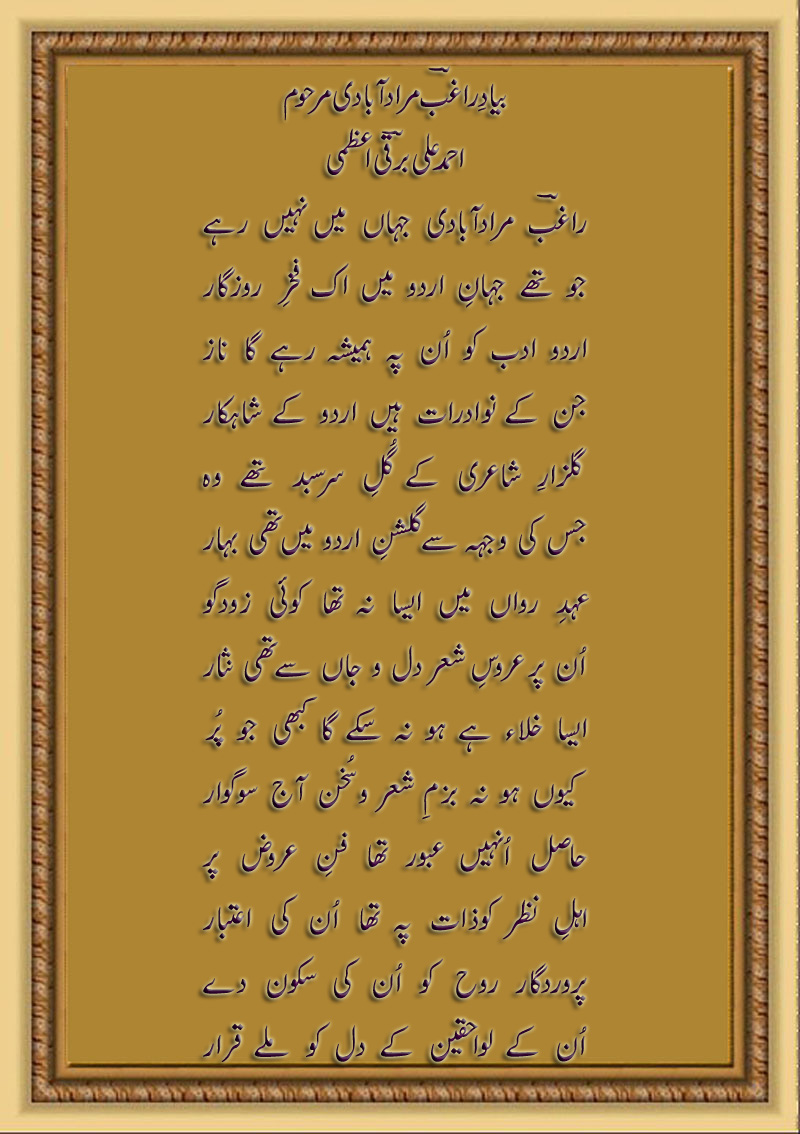 بیادِ راغبؔ مرادآبادی مرحوم
احمد علی برقیؔ اعظمی
راغبؔ مرادآبادی جہاں میں نہیں رہے
جو تھے جہانِ اردو میں اک فخرِ روزگار
اردو ادب کو اُن پہ ہمیشہ رہے گا ناز
جن کے نوادرات ہیں اردو کے شاہکار
گلزارِ شاعری کے گُلِ سرسبد تھے وہ
جس کی وجہہ سے گلشنِ اردو میں تھی بہار
عہدِ رواں میں ایسا نہ تھا کوئی زودگو
اُن پر عروسِ شعر دل و جاں سے تھی نثار
ایسا خلاء ہے ہو نہ سکے گا کبھی جو پُر
کیوں ہو نہ بزمِ شعر و سُخن آج سوگوار
حاصل اُنہیں عبور تھا فنِ عروض پر
اہلِ نظر کو ذات پہ تھا اُن کی اعتبار
پروردگار روح کو اُن کی سکون دے
اُن کے لواحقین کے دل کو ملے قرار